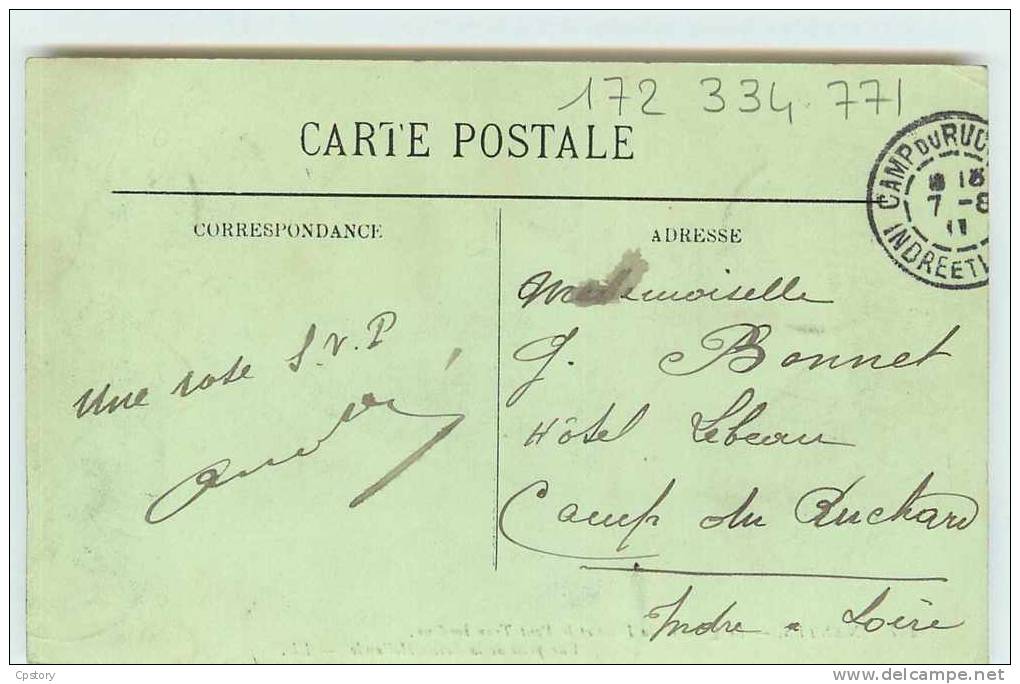 172 334 771
CARTE POSTALE
CAMP DU RUC
18
7 - 8
11
INDRE ET L
CORRESPONDANCE
ADRESSE
Mademoiselle
G. Bonnet
Hôtel Lebeau
Camp du Ruchard
Indre & Loire
Une rose S.V.P
Cpstory
www.delcampe.net